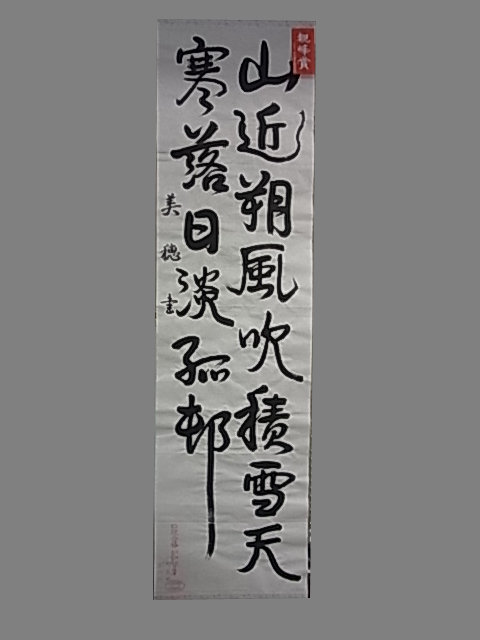 山近朔風吹積雪天
寒落日淡孤邨
美穂書
親峰賞